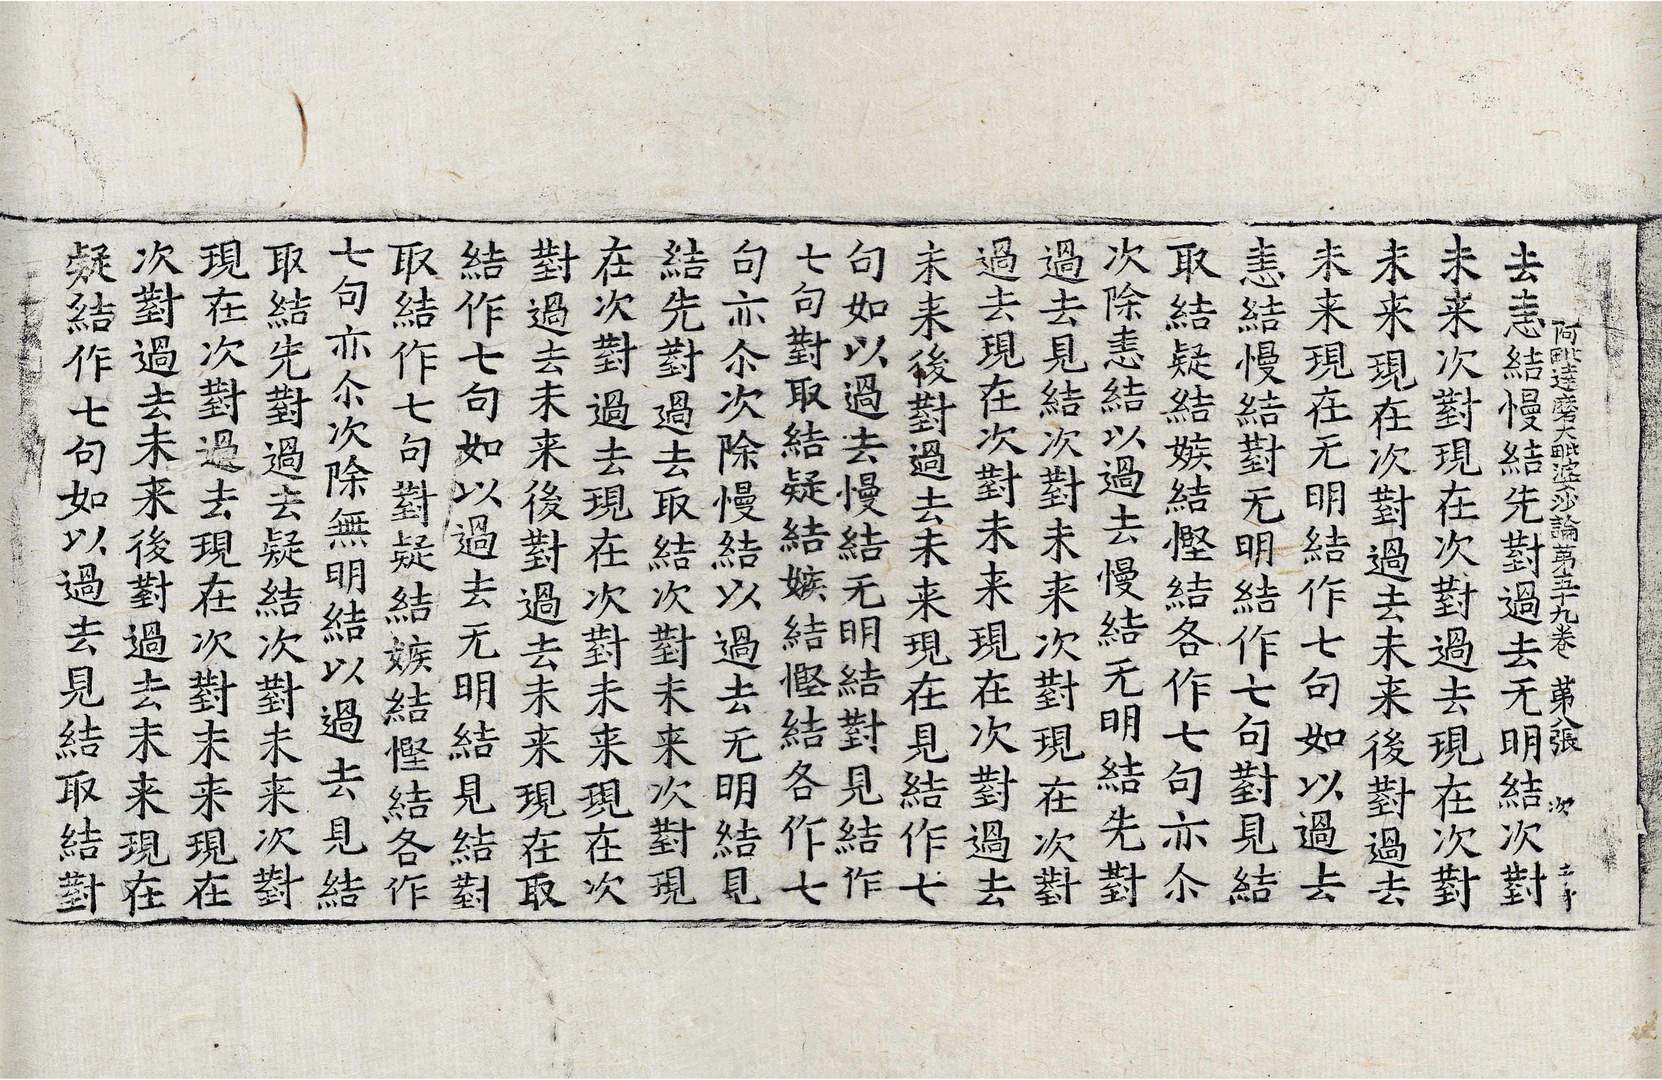 阿毗達磨大毗婆沙論第五十九卷 第八張 次
去恚結慢結先對過去无明結次對
未来次對現在次對過去現在次對
未来現在次對過去未来後對過去
未来現在无明結作七句如以過去
恚結慢結對无明結作七句對見結
取結疑結嫉結慳結各作七句亦尒
次除恚結以過去慢結无明結先對
過去見結次對未来次對現在次對
過去現在次對未来現在次對過去
未来後對過去未来現在見結作七
句如以過去慢結无明結對見結作
七句對取結疑結嫉結慳結各作七
句亦尒次除慢結以過去无明結見
結先對過去取結次對未来次對現
在次對過去現在次對未来現在次
對過去未来後對過去未来現在取
結作七句如以過去无明結見結對
取結作七句對疑結嫉結慳結各作
七句亦尒次除無明結以過去見結
取結先對過去疑結次對未来次對
現在次對過去現在次對未来現在
次對過去未来後對過去未来現在
疑結作七句如以過去見結取結對